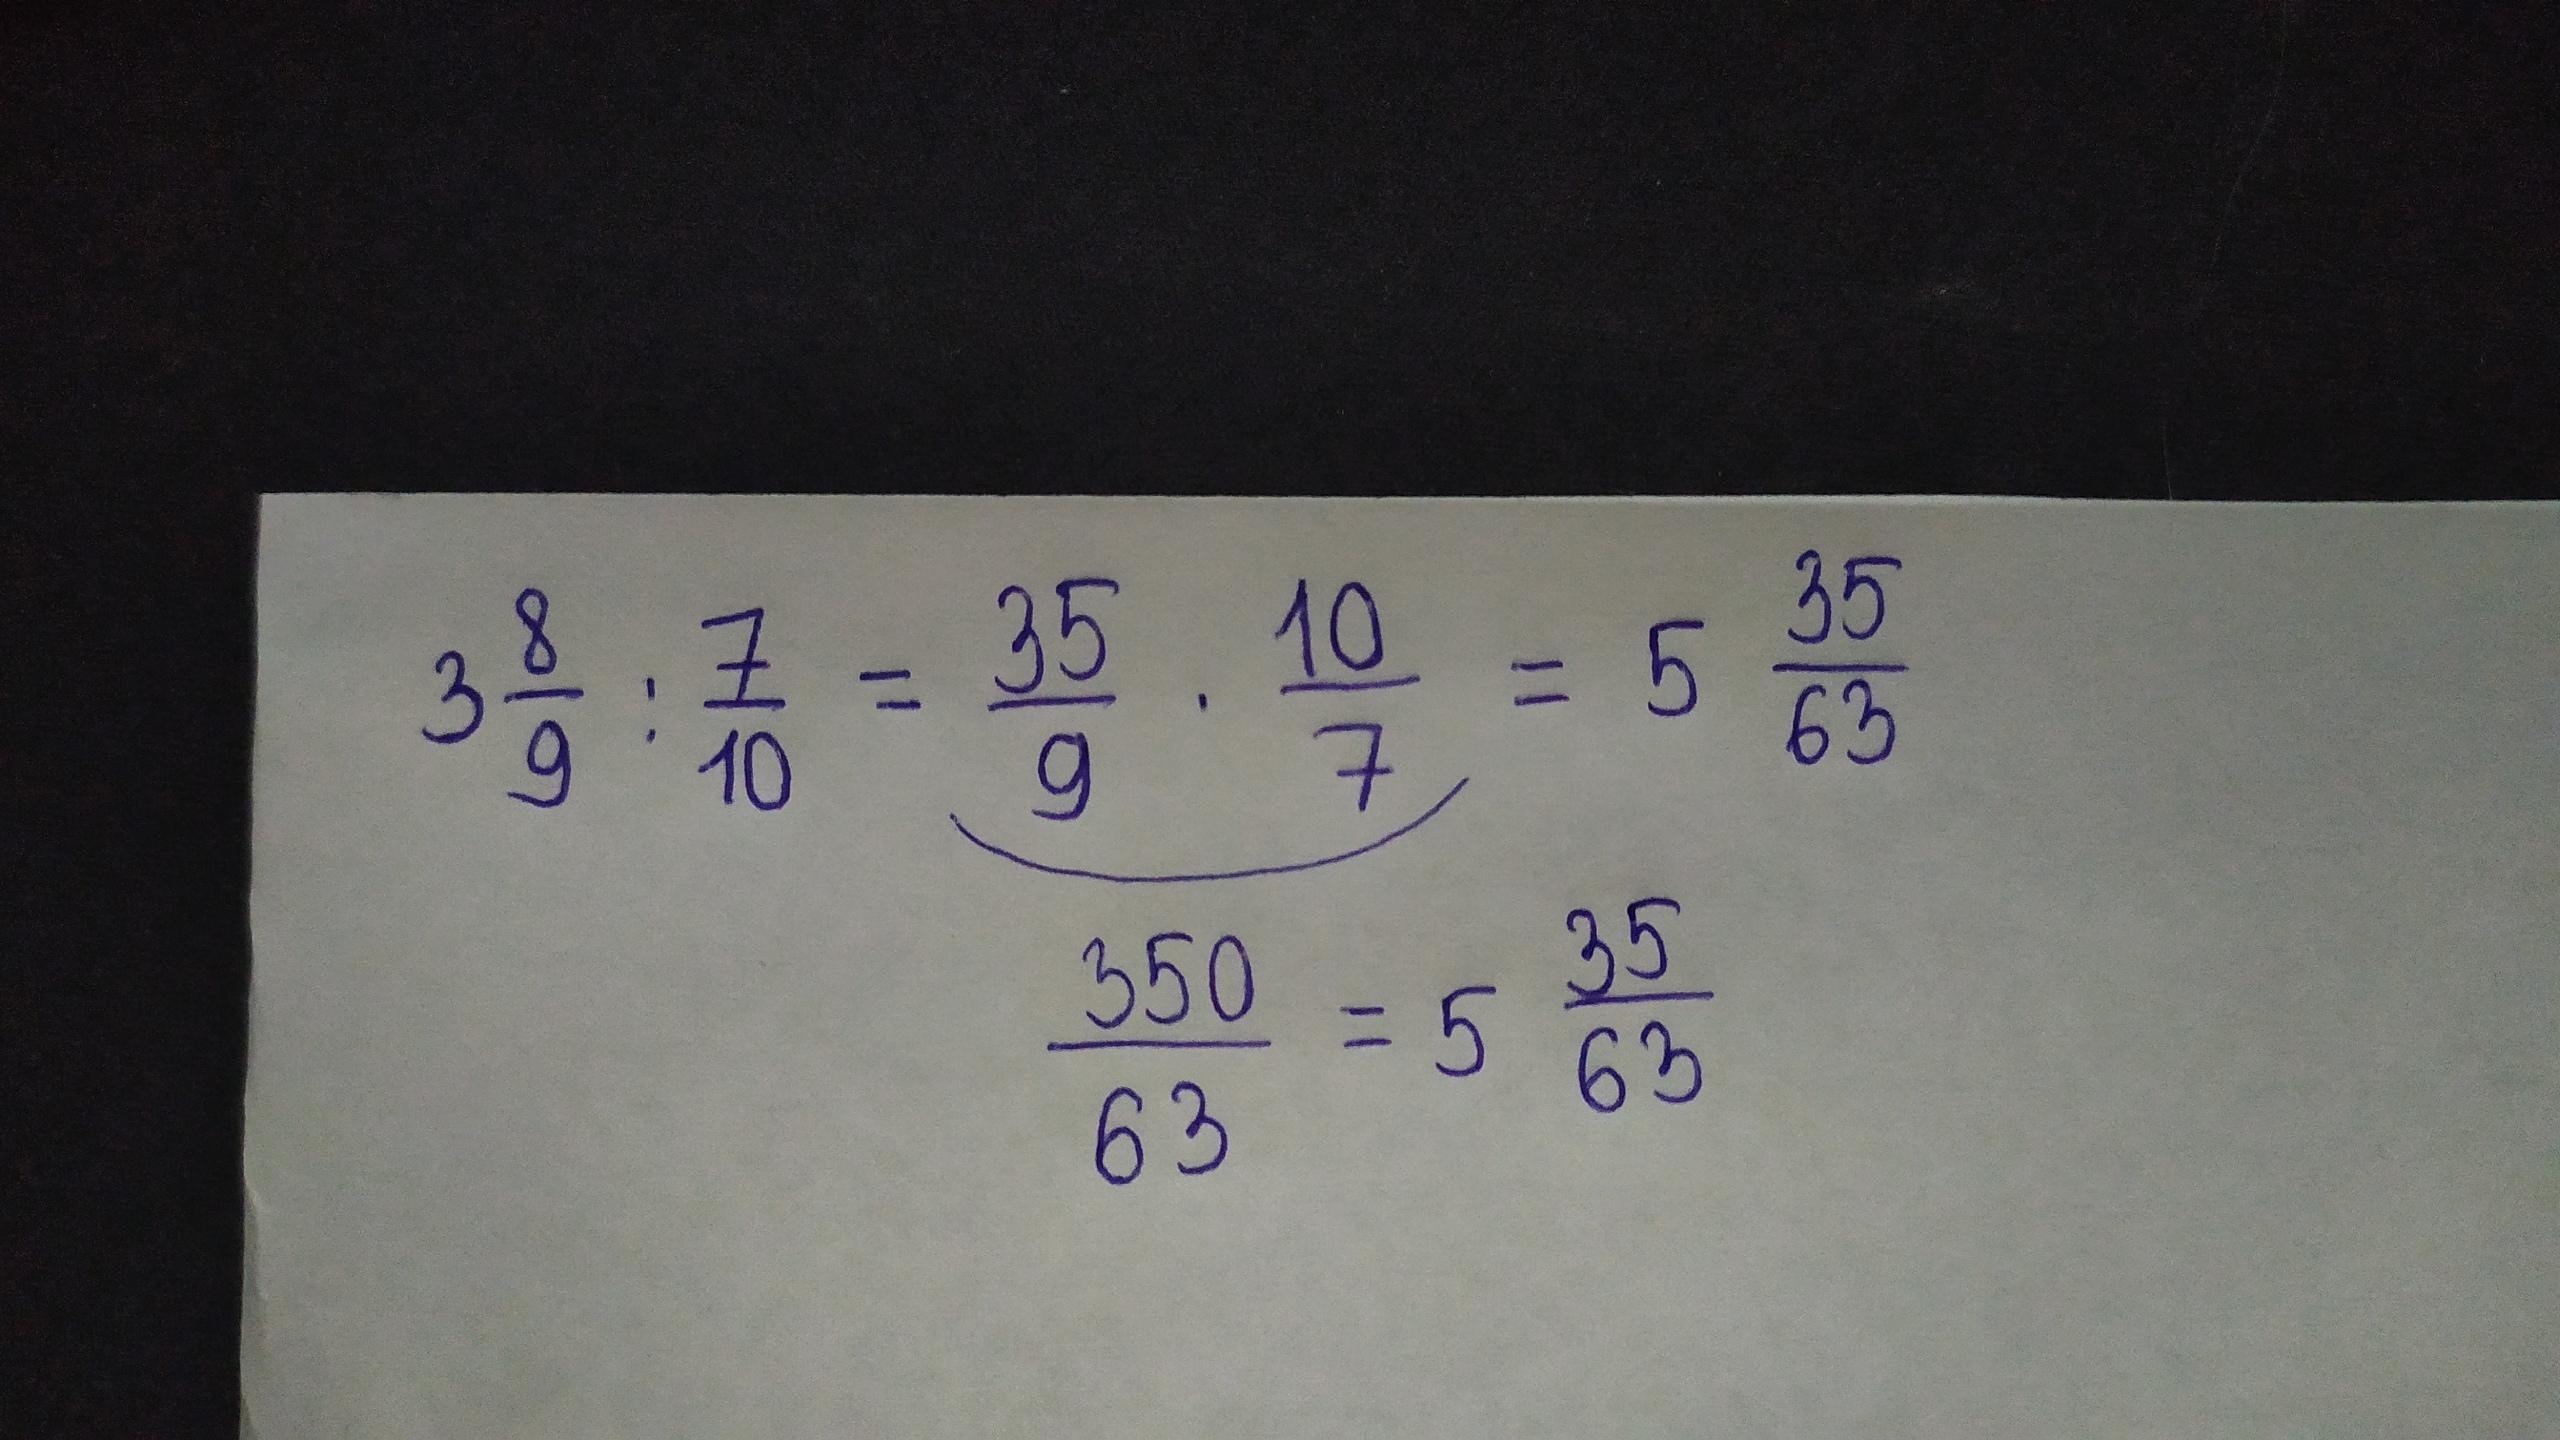 3 8/9 : 7/10 = 35/9 · 10/7 = 5 35/63
350/63 = 5 35/63